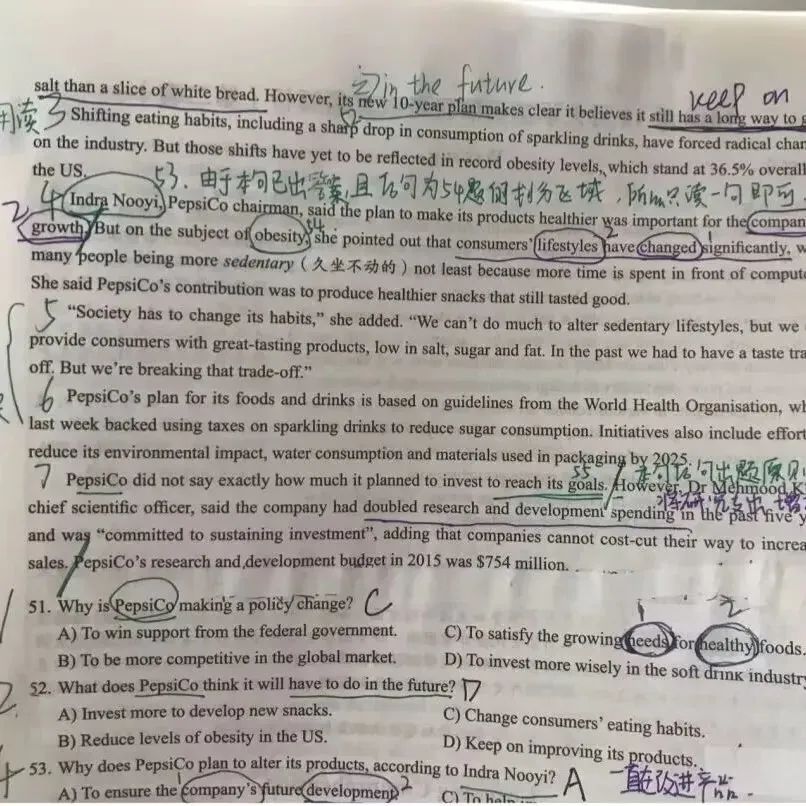 ② in the future.
salt than a slice of white bread. However, its new 10-year plan makes clear it believes it still has a long way to
keep on
3 Shifting eating habits, including a sharp drop in consumption of sparkling drinks, have forced radical
on the industry. But those shifts have yet to be reflected in record obesity levels, which stand at 36.5% overall
the US.
53. 由于本句已出答案,且后句为54题的
4 Indra Nooyi, PepsiCo chairman, said the plan to make its products healthier was important for the
growth. But on the subject of obesity, she pointed out that consumers' lifestyles have changed significantly,
many people being more sedentary (久坐不动的) not least because more time is spent in front of
She said PepsiCo's contribution was to produce healthier snacks that still tasted good.
5 "Society has to change its habits," she added. "We can't do much to alter sedentary lifestyles, but we
provide consumers with great-tasting products, low in salt, sugar and fat. In the past we had to have a taste
off. But we're breaking that trade-off."
6 PepsiCo's plan for its foods and drinks is based on guidelines from the World Health Organisation,
last week backed using taxes on sparkling drinks to reduce sugar consumption. Initiatives also include
reduce its environmental impact, water consumption and materials used in packaging by 2025.
55
7 PepsiCo did not say exactly how much it planned to invest to reach its goals. However, Dr Mehmood
chief scientific officer, said the company had doubled research and development spending in the past five
and was "committed to sustaining investment", adding that companies cannot cost-cut their way to
sales. PepsiCo's research and development budget in 2015 was $754 million.
51. Why is PepsiCo making a policy change? C
A) To win support from the federal government.
C) To satisfy the growing needs for healthy foods.
B) To be more competitive in the global market.
D) To invest more wisely in the soft drink
52. What does PepsiCo think it will have to do in the future? D
A) Invest more to develop new snacks.
C) Change consumers' eating habits.
B) Reduce levels of obesity in the US.
D) Keep on improving its products.
53. Why does PepsiCo plan to alter its products, according to Indra Nooyi? A
A) To ensure the company's future development.
C) To help